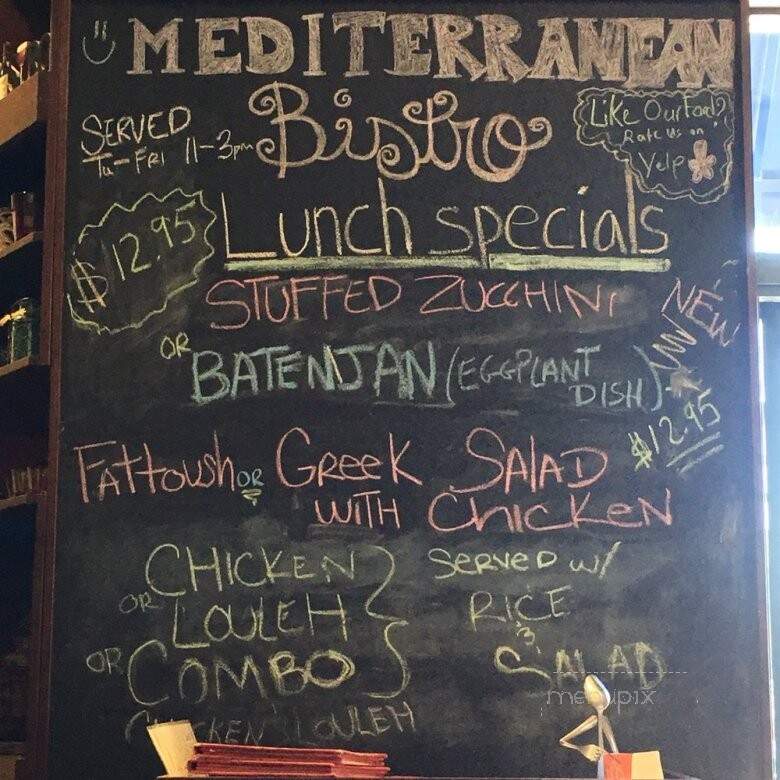 MEDITERRANEAN
Bistro
SERVED
Tu-FRI 11-3pm
Like Our Food?
Rate Us on
Yelp
$12.95
Lunch specials
STUFFED ZUCCHINI
NEW
OR BATENJAN (EGGPLANT
DISH)
$12.95
Fattoush OR Greek Salad
with Chicken
CHICKEN
OR LOULEH
OR COMBO
CHICKEN LOULEH
Served w/
RICE
&
SALAD
menupix